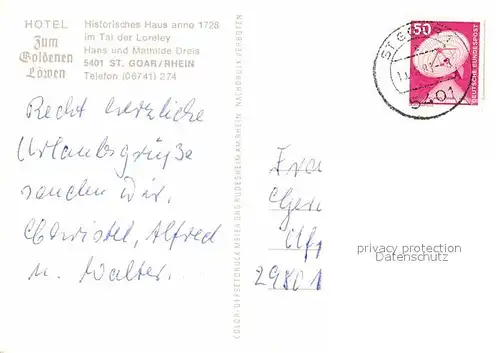 HOTEL
Zum
Goldenen
Löwen
Historisches Haus anno 1728
im Tal der Loreley
Hans und Mathilde Dreis
5401 ST. GOAR/RHEIN
Telefon (06741) 274
NACHDRUCK VERBOTEN
COLOR-OFFSETDRUCK RÜDESHEIM AM RHEIN
Recht herzliche
Urlaubsgrüße
senden wir.
Christel, Alfred
u. Walter.
50
DEUTSCHE BUNDESPOST
ST. GOAR
5401
Fra
Ger
2980
privacy protection
Datenschutz